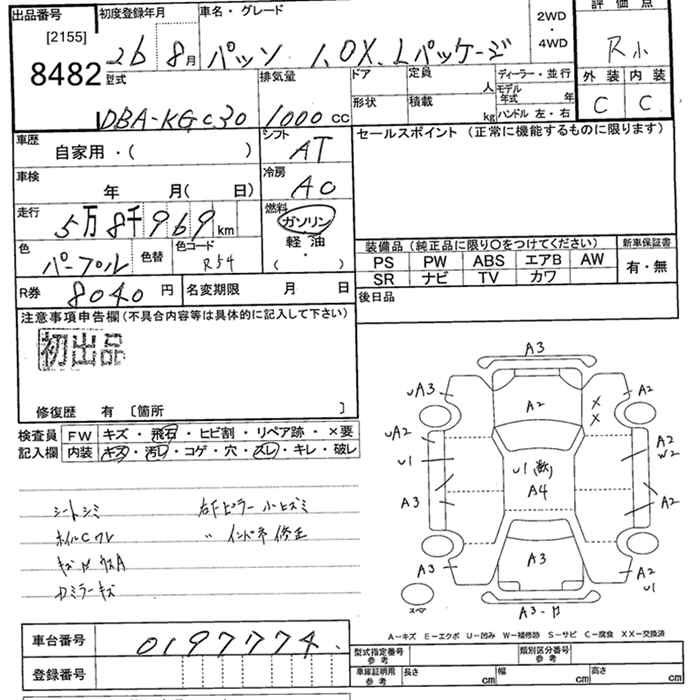 出品番号 初度登録年月 車名・グレード 2WD・4WD 評価点
[2155] 8482 26年 8月 パッソ 1.0X.Lパッケージ R小
型式 排気量 ドア 定員 人 ディーラー・並行 外装 内装
形状 積載 kg モデル年式 年 ハンドル 左・右 C C
DBA-KGC30 1000cc
車歴 シフト セールスポイント (正常に機能するものに限ります)
自家用・( ) AT
車検 冷房
年 月( 日) AC
走行 燃料
5万8千969km ガソリン
色 色替 色コード 軽油・( ) 装備品(純正品に限り○をつけてください) 新車保証書
パープル R54 PS PW ABS エアB AW 有・無
SR ナビ TV カワ
R券 8040円 名変期限 月 日 後日品
注意事項申告欄(不具合内容等は具体的に記入して下さい)
初出品
修復歴 有 [箇所 ]
検査員 FW キズ・飛石・ヒビ割・リペア跡・×要
記入欄 内装 キズ・汚レ・コゲ・穴・スレ・キレ・破レ
シートシミ 右Fピラー小ヒズミ
〃 インパネ修正
ドアミラーキズ
A3
UA3 A2 X X A2
UA2 A2 W2
U1 U1(歎) A4
A3 A2
A3 A3 A2 U1
スペア A3-P
A-キズ E-エクボ U-凹み W-補修跡 S-サビ C-腐食 XX-交換済
車台番号 0197774. 型式指定番号 参考 類別区分番号 参考
登録番号 車庫証明用 参考 長さ cm 幅 cm 高さ cm